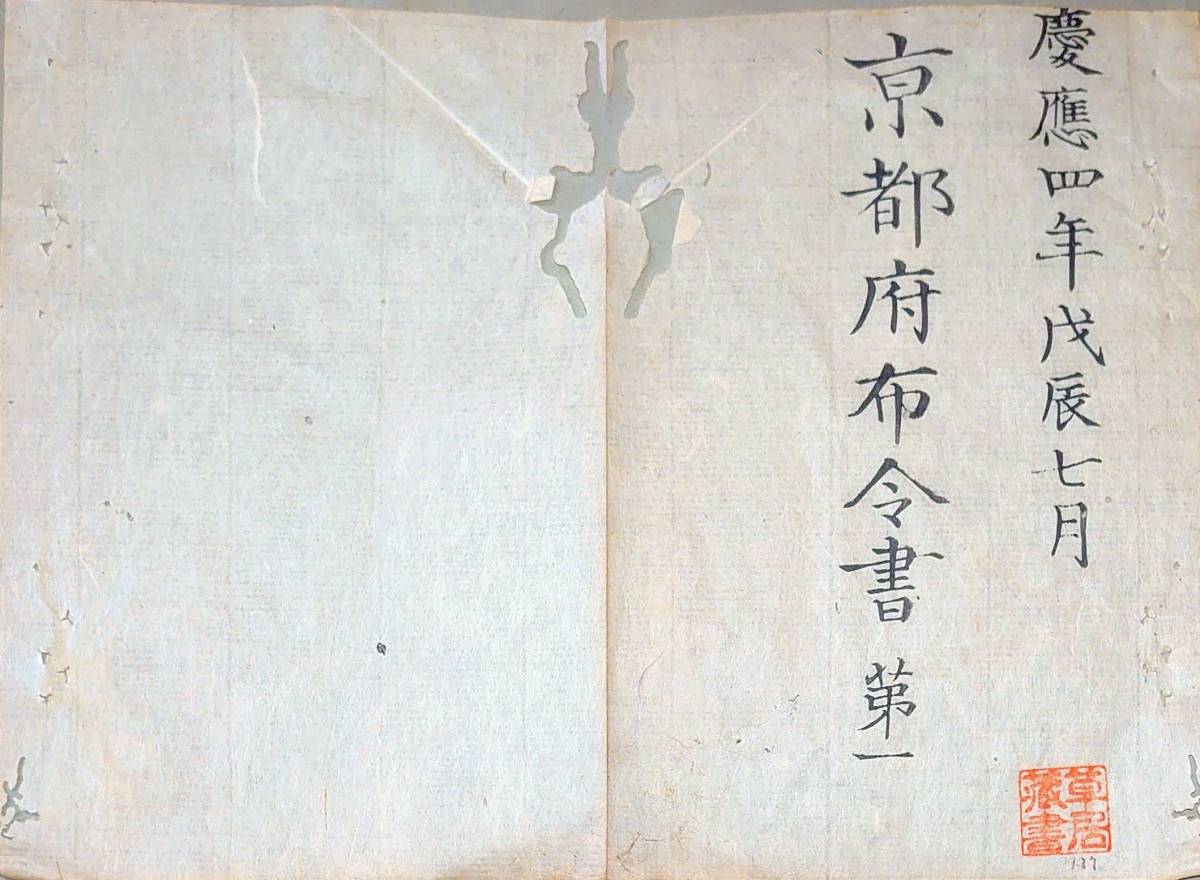 慶應四年戊辰七月
京都府布令書 第一
草居
藏書
137